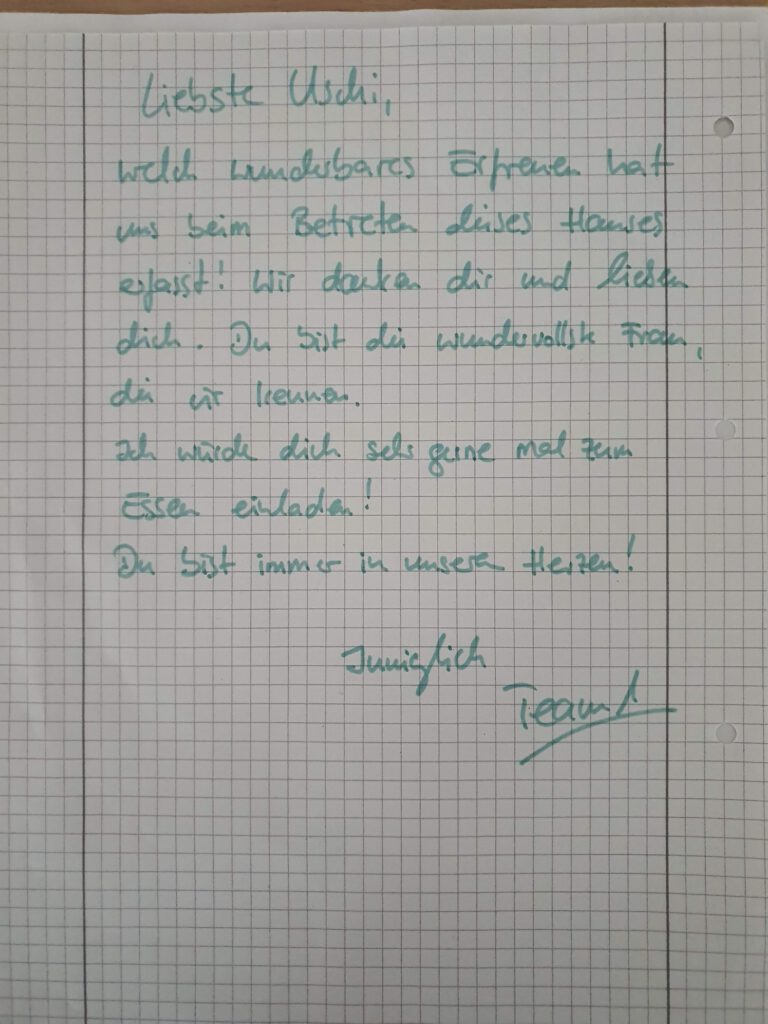 Liebste Uschi,
welch wunderbares Erfreuen hat
uns beim Betreten dieses Hauses
erfasst! Wir danken dir und lieben
dich. Du bist die wundervollste Frau,
die wir kennen.
Ich würde dich sehr gerne mal zum
Essen einladen!
Du bist immer in unseren Herzen!
Inniglich
Team 1